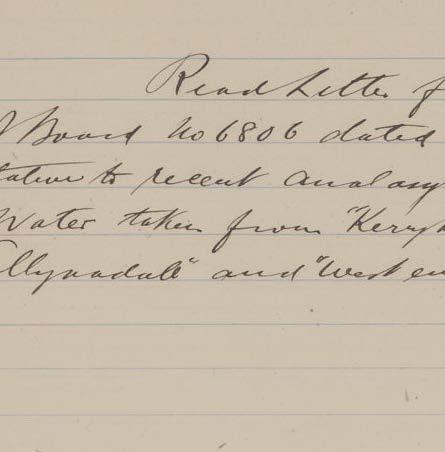 Read Letter f
Board No 6806 dated
tative to recent Analasy
Water taken from "Kerry
llynadale" and "West en